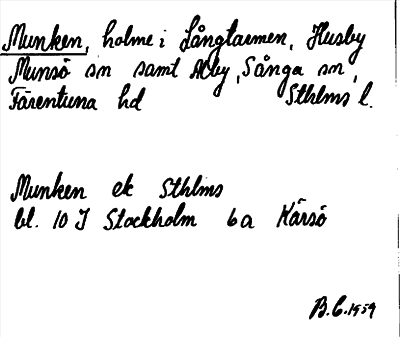 Munken, holme i Långtarmen, Husby
Munsö sn samt Alby, Sånga sn,
Färentuna hd Sthlms l.
Munken ek Sthlms
bl. 10 I Stockholm 6a Kärsö
B.C. 1959